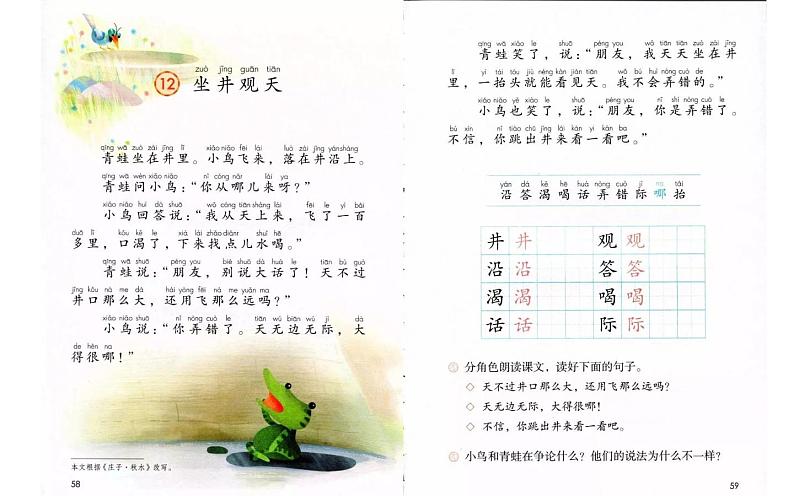 zuò jǐng guān tiān
12 坐井观天
qīng wā zuò zài jǐng lǐ xiǎo niǎo fēi lái luò zài jǐng yán shàng
青蛙坐在井里。小鸟飞来，落在井沿上。
qīng wā wèn xiǎo niǎo nǐ cóng nǎr lái ya
青蛙问小鸟：“你从哪儿来呀？”
xiǎo niǎo huí dá shuō wǒ cóng tiān shàng lái fēi le yì bǎi
小鸟回答说：“我从天上来，飞了一百
duō lǐ kǒu kě le xià lái zhǎo diǎnr shuǐ hē
多里，口渴了，下来找点儿水喝。”
qīng wā shuō péng you bié shuō dà huà le tiān bú guò
青蛙说：“朋友，别说大话了！天不过
jǐng kǒu nà me dà hái yòng fēi nà me yuǎn ma
井口那么大，还用飞那么远吗？”
xiǎo niǎo shuō nǐ nòng cuò le tiān wú biān wú jì dà
小鸟说：“你弄错了。天无边无际，大
de hěn na
得很哪！”
本文根据《庄子·秋水》改写。
58
qīng wā xiào le shuō péng you wǒ tiān tiān zuò zài jǐng
青蛙笑了，说：“朋友，我天天坐在井
lǐ yì tái tóu jiù néng kàn jiàn tiān wǒ bú huì nòng cuò de
里，一抬头就能看见天。我不会弄错的。”
xiǎo niǎo yě xiào le shuō péng you nǐ shì nòng cuò le
小鸟也笑了，说：“朋友，你是弄错了。
bú xìn nǐ tiào chū jǐng lái kàn yí kàn ba
不信，你跳出井来看一看吧。”
yán dá kě hē huà nòng cuò jì na tái
沿答渴喝话弄错际哪抬
井 井 观 观
沿 沿 答 答
渴 渴 喝 喝
话 话 际 际
分角色朗读课文，读好下面的句子。
◇ 天不过井口那么大，还用飞那么远吗？
◇ 天无边无际，大得很哪！
◇ 不信，你跳出井来看一看吧。
小鸟和青蛙在争论什么？他们的说法为什么不一样？
59